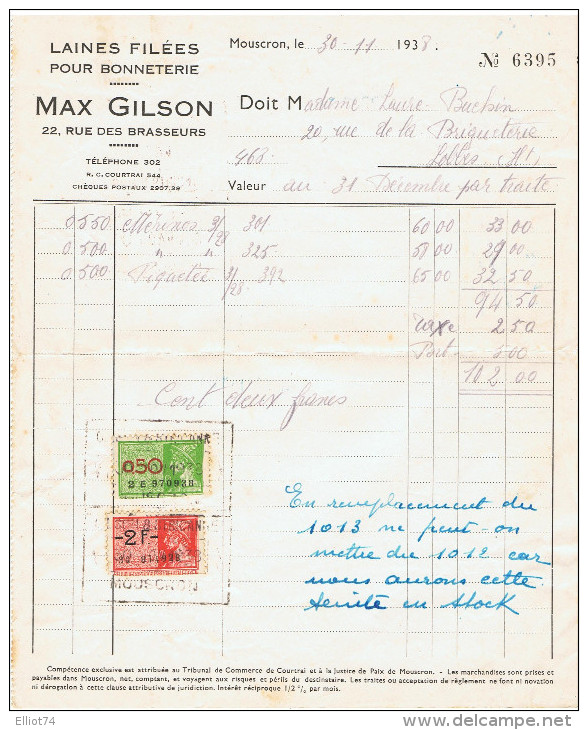 LAINES FILÉES
POUR BONNETERIE
MAX GILSON
22, RUE DES BRASSEURS
TÉLÉPHONE 302
R. C. COURTRAI 544
CHÈQUES POSTAUX 2907.39
Mouscron, le 30-11 1938.
№ 6395
Doit Madame Laure
20, rue de la Briqueterie
468. Lobbes (Ht.)
Valeur au 31 Décembre par traite
0 550 Mérinos 3/28 301 60 00 33 00
0 500 " " 325 58 00 29 00
0 500 392 65 00 32 50
94.50
taxe 2 50
Port 5 00
102 00
Cent deux francs
0.50
-2F-
MOUSCRON
En remplacement du
1013 ne peut-on
mettre du 1012 car
nous aurons cette
teinte en stock
Compétence exclusive est attribuée au Tribunal de Commerce de Courtrai et à la Justice de Paix de Mouscron. - Les marchandises sont prises et
payables dans Mouscron, net, comptant, et voyagent aux risques et périls du destinataire. Les traites ou acceptation de règlement ne font ni novation
ni dérogation à cette clause attributive de juridiction. Intérêt réciproque 1/2 % par mois.
Elliot74
www.delcampe.net